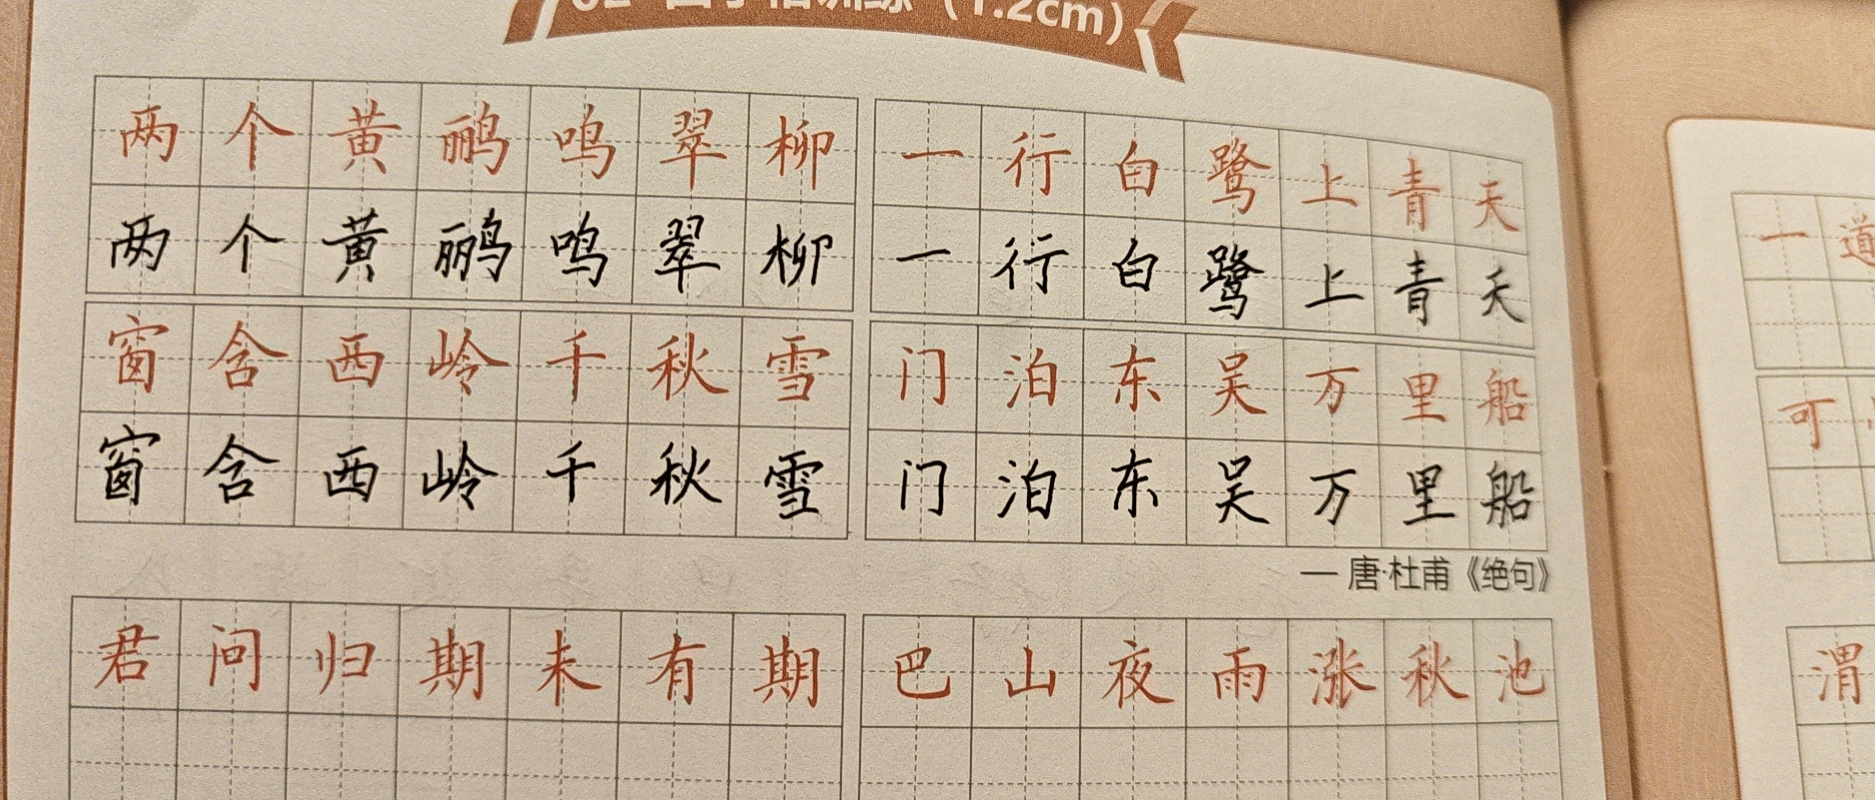 （1.2cm）
两个黄鹂鸣翠柳 一行白鹭上青天
两个黄鹂鸣翠柳 一行白鹭上青天
窗含西岭千秋雪 门泊东吴万里船
窗含西岭千秋雪 门泊东吴万里船
— 唐·杜甫《绝句》
君问归期未有期 巴山夜雨涨秋池
一道
可
渭